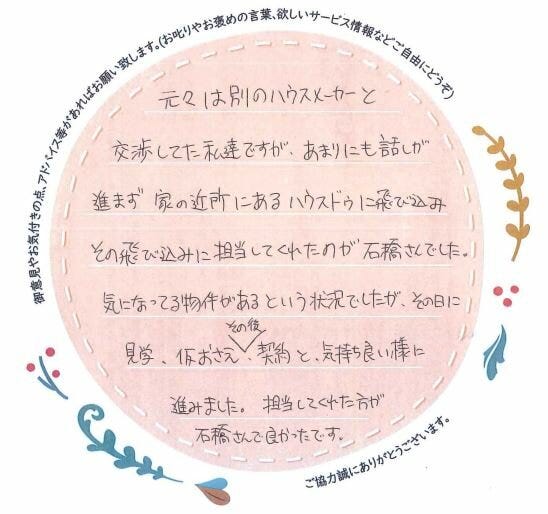 御意見やお気付きの点、アドバイス等があればお願い致します。(お叱りやお褒めの言葉、欲しいサービス情報などご自由にどうぞ)
元々は別のハウスメーカーと
交渉してた私達ですが、あまりにも話しが
進まず 家の近所にあるハウスドゥに飛び込み
その飛び込みに担当してくれたのが石橋さんでした。
気になってる物件があるという状況でしたが、その日に
見学、仮おさえ、その後契約と、気持ち良い様に
進みました。担当してくれた方が
石橋さんで良かったです。
ご協力誠にありがとうございます。